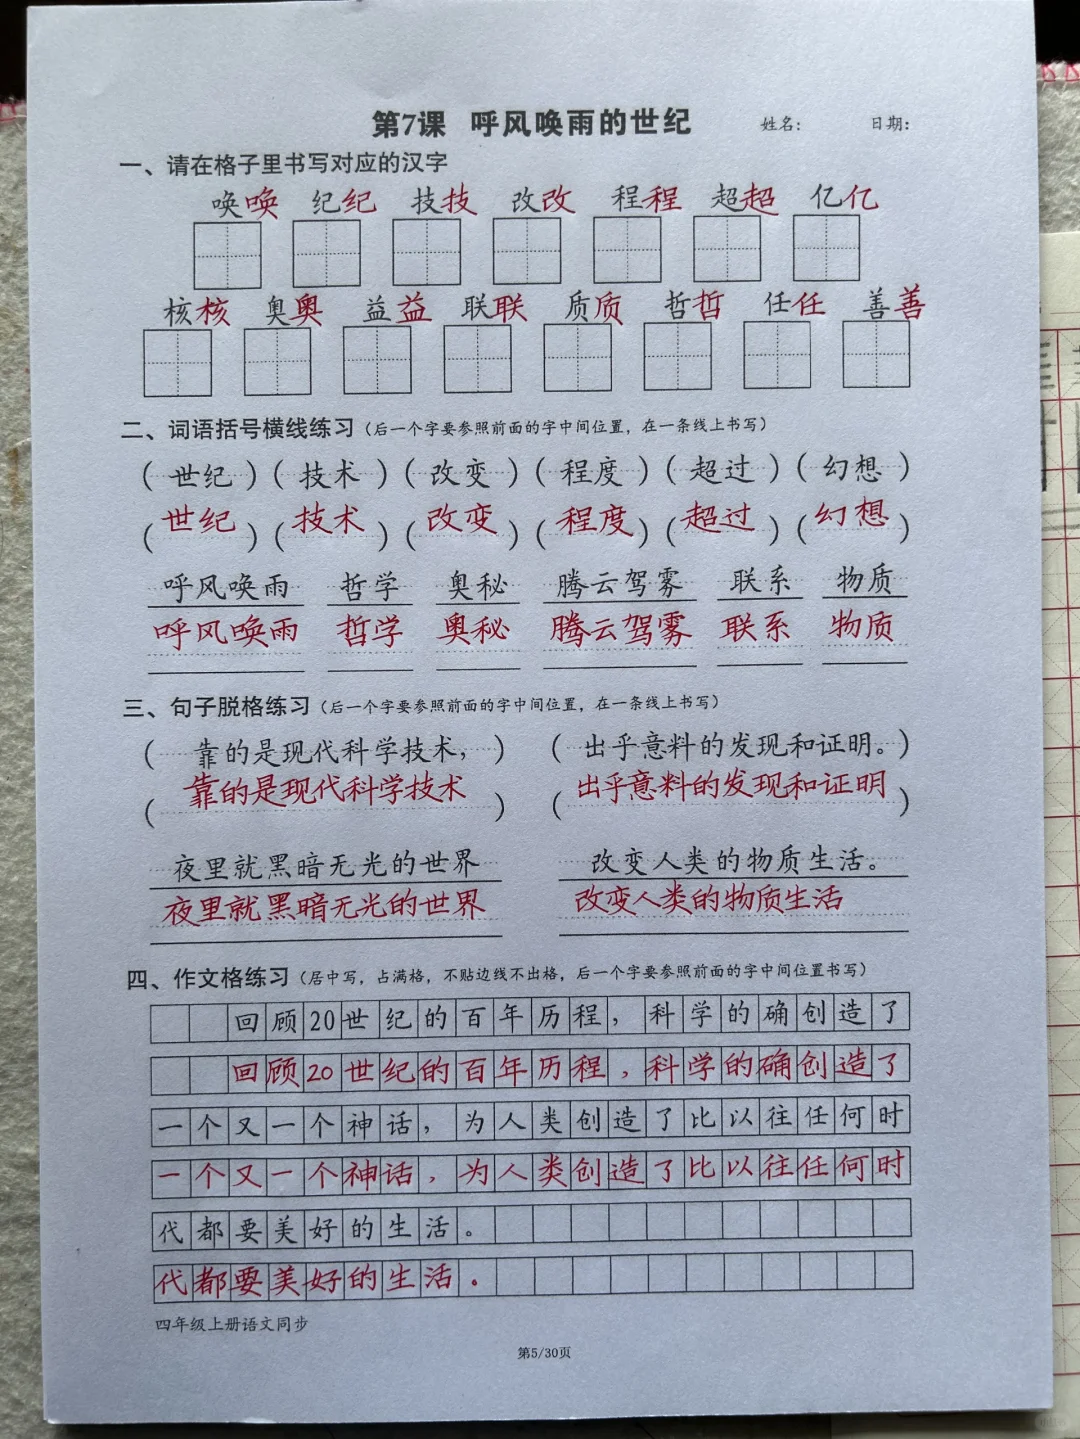 第7课 呼风唤雨的世纪 姓名： 日期：
一、请在格子里书写对应的汉字
唤唤 纪纪 技技 改改 程程 超超 亿亿
核核 奥奥 益益 联联 质质 哲哲 任任 善善
二、词语括号横线练习（后一个字要参照前面的字中间位置，在一条线上书写）
（世纪）（技术）（改变）（程度）（超过）（幻想）
（世纪）（技术）（改变）（程度）（超过）（幻想）
呼风唤雨 哲学 奥秘 腾云驾雾 联系 物质
呼风唤雨 哲学 奥秘 腾云驾雾 联系 物质
三、句子脱格练习（后一个字要参照前面的字中间位置，在一条线上书写）
（靠的是现代科学技术，）（出乎意料的发现和证明。）
（靠的是现代科学技术）（出乎意料的发现和证明）
夜里就黑暗无光的世界 改变人类的物质生活。
夜里就黑暗无光的世界 改变人类的物质生活
四、作文格练习（居中写，占满格，不贴边线不出格，后一个字要参照前面的字中间位置书写）
回顾20世纪的百年历程，科学的确创造了
回顾20世纪的百年历程，科学的确创造了
一个又一个神话，为人类创造了比以往任何时
一个又一个神话，为人类创造了比以往任何时
代都要美好的生活。
代都要美好的生活。
四年级上册语文同步
第5/30页